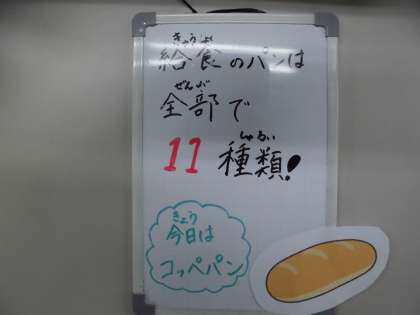 きゅうしょく
給食のパンは
ぜんぶ
全部で
しゅるい
11 種類!
きょう
今日は
コッペパン